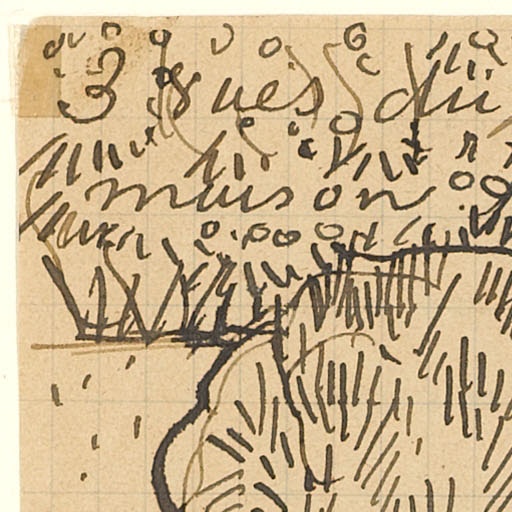 3 vues du
maison